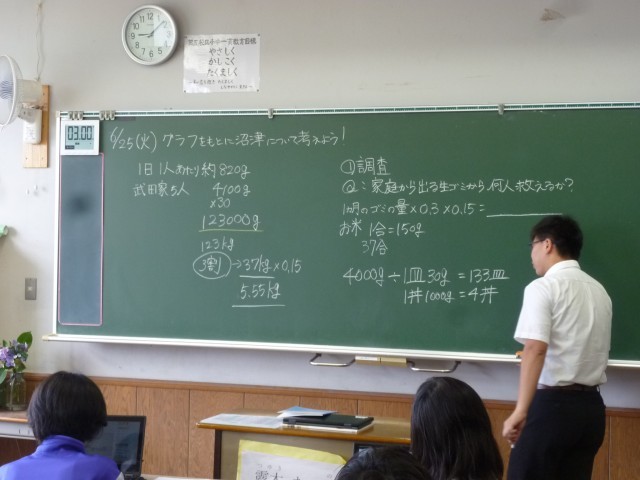 やさしく
かしこく
たくましく
03:00
6/25(火) グラフをもとに沼津について考えよう!
1日1人あたり約820g
武田家5人 4100g
×30
123000g
123kg
3割 → 37kg×0.15
5.55kg
①調査
Q:家庭から出る生ゴミから何人救えるか?
1ヵ月のゴミの量×0.3×0.15=
お米 1合=150g
37合
4000g÷1皿30g=133皿
1丼1000g=4丼